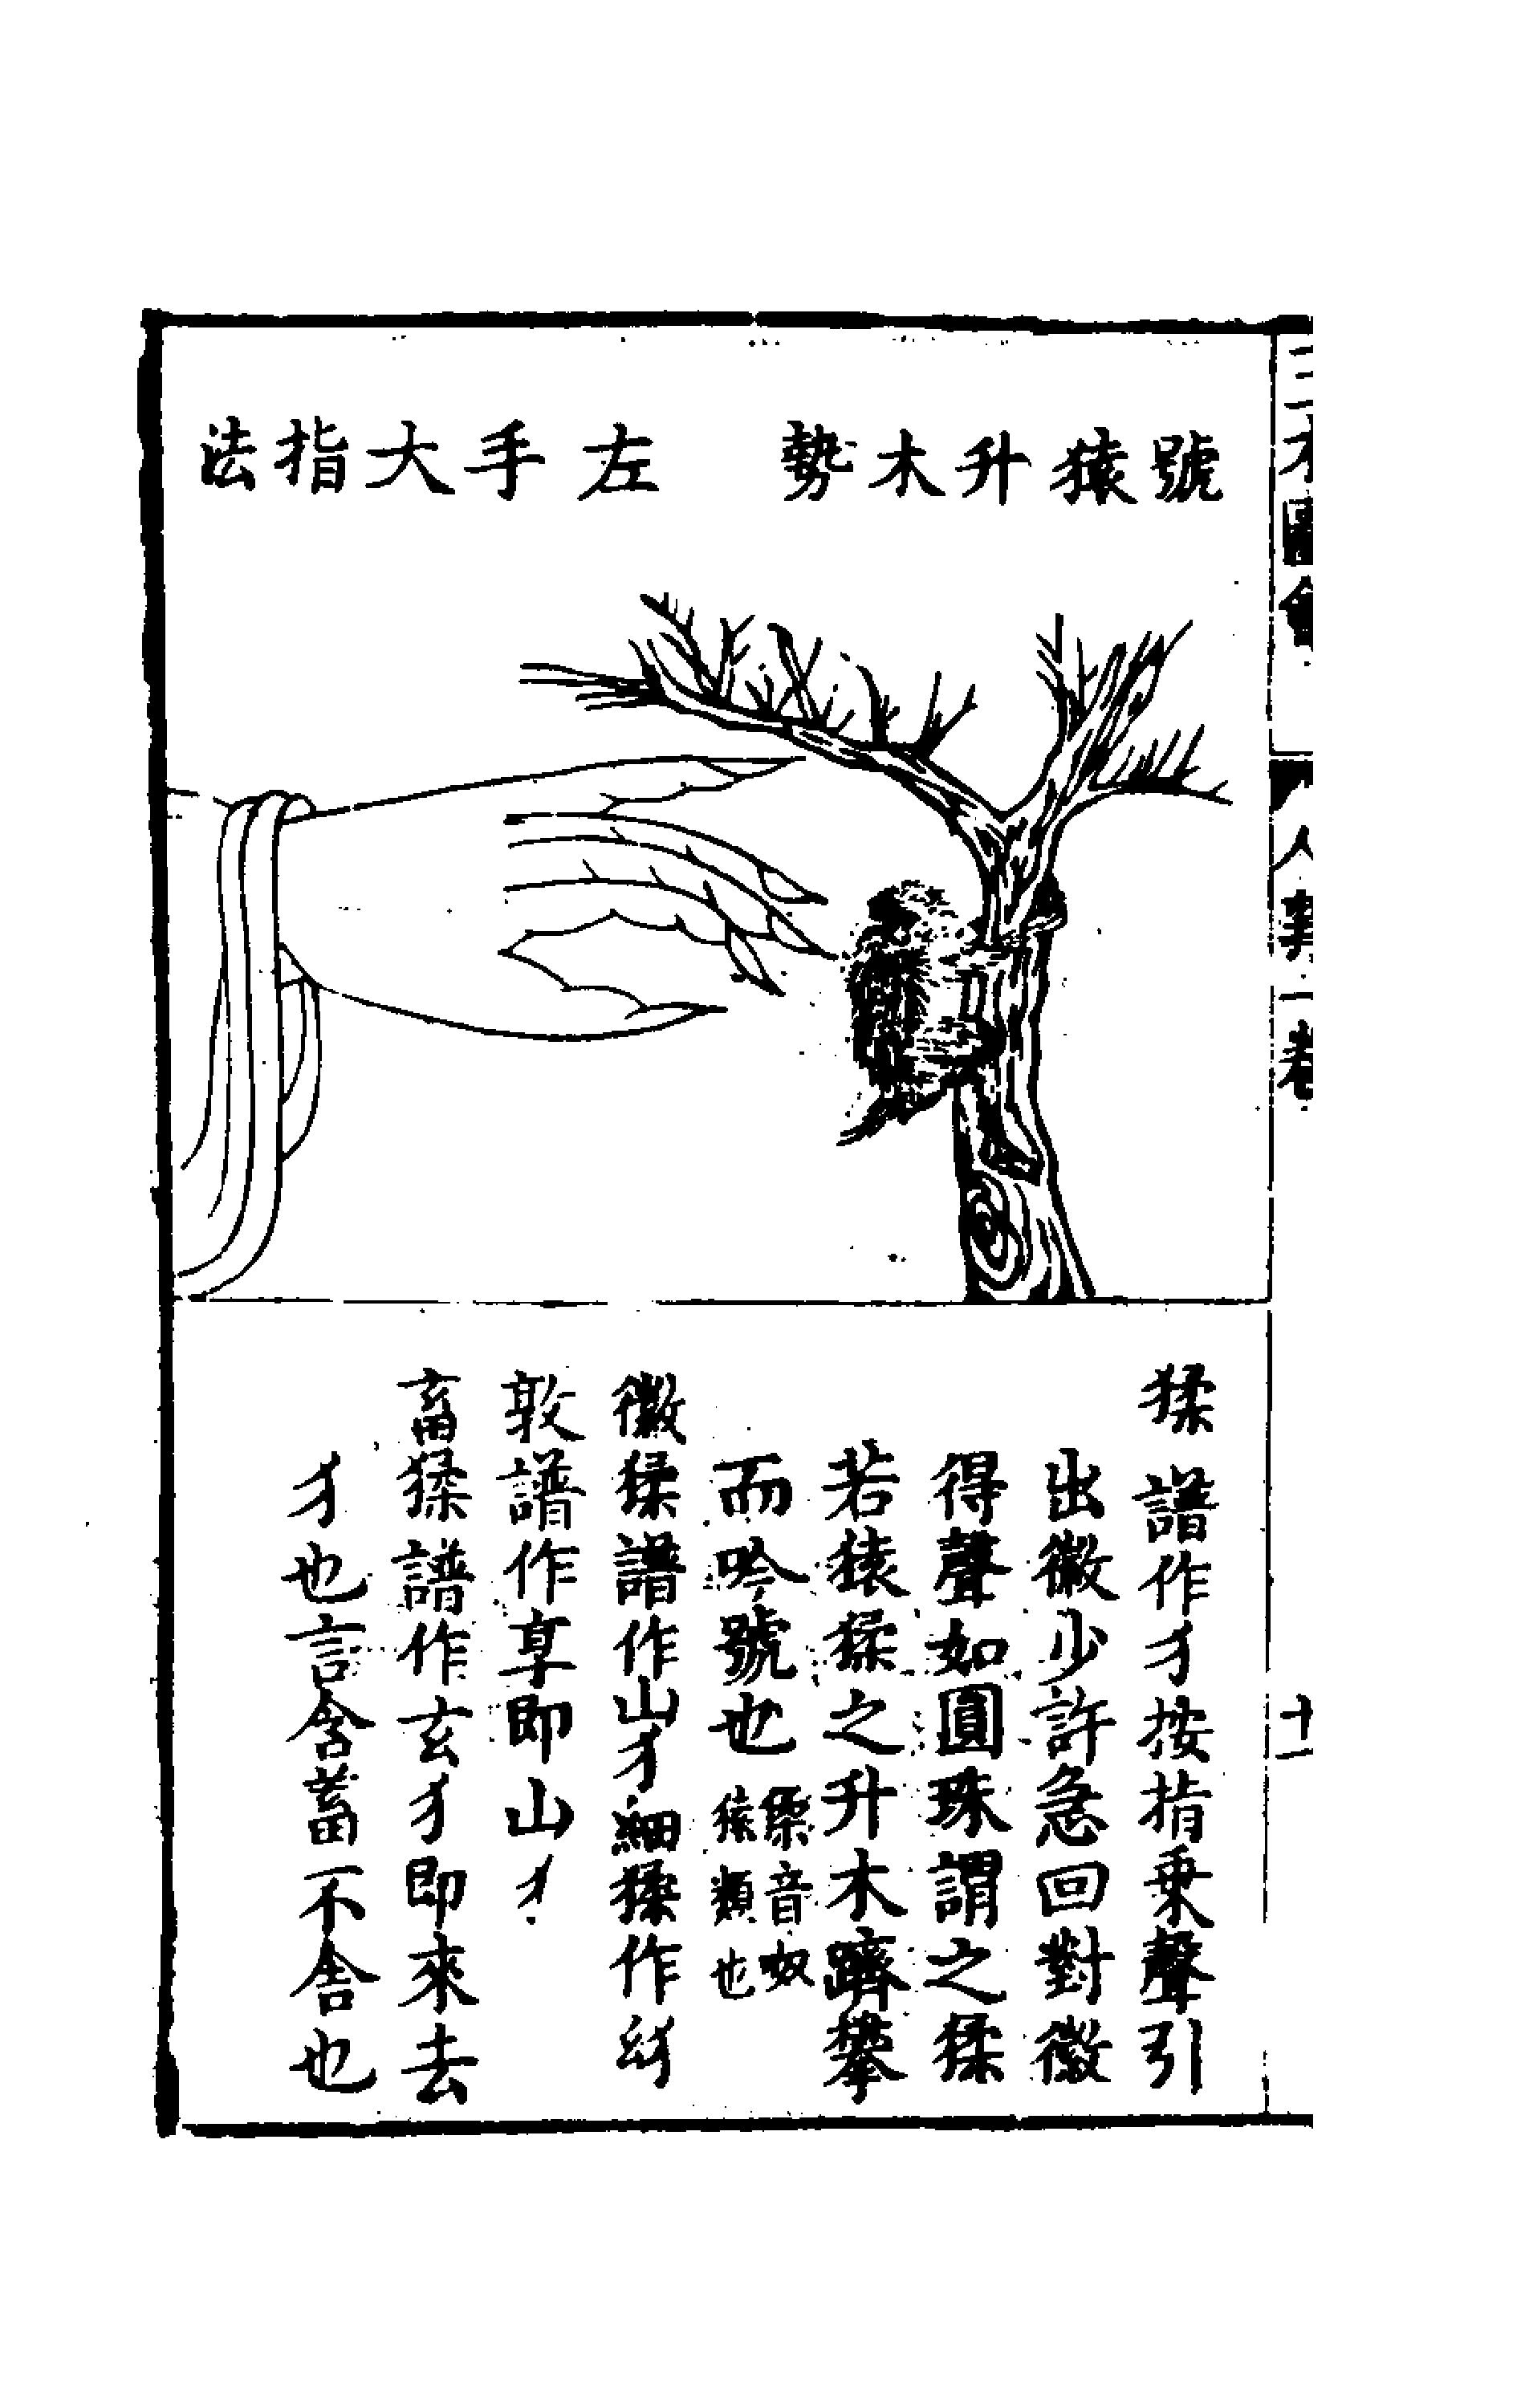 號猿升木勢　左手大指法
猱　譜作犭按指乗聲引
出徽少許急回對徽
得聲如圓珠謂之猱
若猿猱之升木躋攀
而吟號也 猱音呶猿類也
徽猱譜作山犭細猱作纟犭
敦譜作享即山犭
畜猱譜作玄犭即來去
犭也言含蓄不舍也
三才圖會
人事一卷
十一